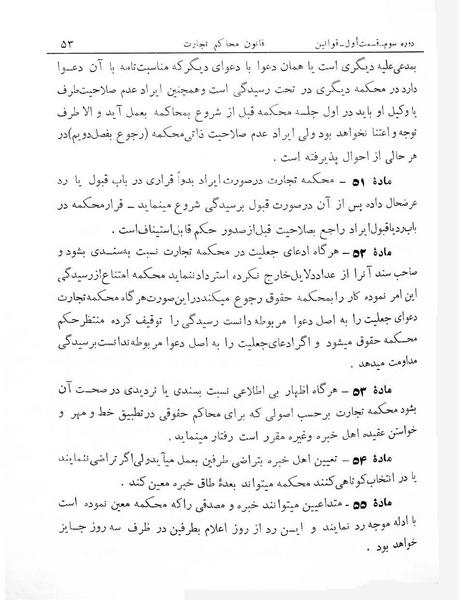 دوره سوم-قسمت أول-قوانین قانون محاکم تجارت ۵۳
بمدعی‌علیه دیگری است یا همان دعوا با دعوای دیگر که مناسبت‌تامه با آن دعوا
دارد در محکمه دیگری در تحت رسیدگی است و همچنین ایراد عدم صلاحیت طرف
یا وکیل او باید در اول جلسه محکمه قبل از شروع بمحاکمه بعمل آید و الا طرف
توجه و اعتنا نخواهد بود ولی ایراد عدم صلاحیت ذاتی محکمه (رجوع بفصل دویم) در
هر حالی از احوال پذیرفته است .
مادهٔ ۵۱ - محکمه تجارت درصورت ایراد بدوآ قراری در باب قبول یا رد
عرضحال داده پس از آن درصورت قبول برسیدگی شروع مینماید - قرار محکمه در
باب رد یا قبول ایراد راجع بصلاحیت قبل از صدور حکم قابل استیناف است.
مادهٔ ۵۲ - هر گاه ادعای جعلیت در محکمه تجارت نسبت به سندی بشود و
صاحب سند آنرا از عداد دلایل خارج نکرده استرداد ننماید محکمه امتناع از رسیدگی
این امر نموده کار را بمحکمه حقوق رجوع میکند در این صورت هر گاه محکمه تجارت
دعوای جعلیت را به اصل دعوا مربوطه دانست رسیدگی را توقیف کرده منتظر حکم
محکمه حقوق میشود و اگر ادعای جعلیت را به اصل دعوا مربوطه ندانست برسیدگی
مداومت میدهد .
مادهٔ ۵۳ - هر گاه اظهار بی اطلاعی نسبت بسندی یا تردیدی در صحت آن
بشود محکمه تجارت برحسب اصولی که برای محاکم حقوقی در تطبیق خط و مهر و
خواستن عقیده اهل خبره وغیره مقرر است رفتار مینماید.
مادهٔ ۵۴ - تعیین اهل خبره بتراضی طرفین بعمل میآید ولی اگر تراضی ننمایند
یا در انتخاب کوتاهی کنند محکمه میتواند بعدهٔ طاق خبره معین کند .
مادهٔ ۵۵ - متداعیین میتوانند خبره و مصدقی را که محکمه معین نموده است
با ادله موجه رد نمایند و این رد از روز اعلام بطرفین در ظرف سه روز جایز
خواهد بود .